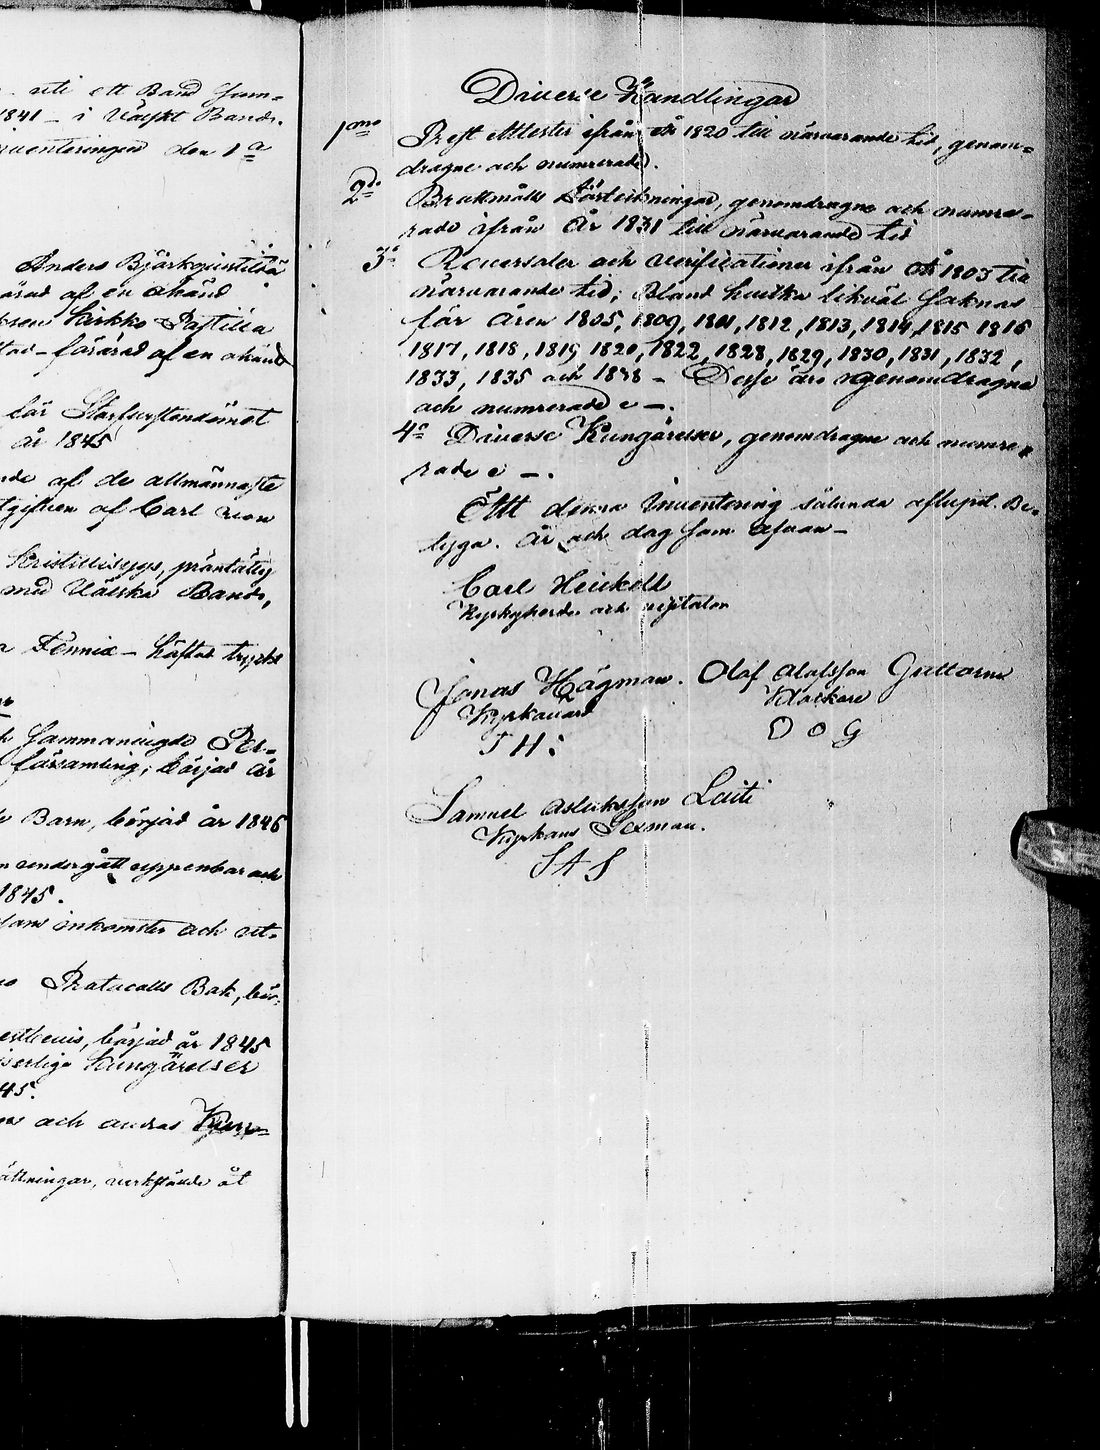 uti ett Band Jem=
1841 – i Wälskt Band.
inventeringen den 1a
Anders Björkquists
ärad af en okänd
Kirkko Postilla
förärad af en okänd
för Storfurstendömet
år 1845
af de allmännaste
utgifven af Carl von
med Wälska Band,
Fennix – häftad tryckt
Sammanvigde Per=
församling, börjad år
Barn, börjad år 1846
undergått uppenbar och
1845.
inkomster och ut=
Protocolls Bok, bör=
börjad år 1845
Kungörelser
45.
och andras
verkstälde åt
Diverse Handlingar
1mo Prest Attester ifrån år 1820 till närvarande tid, genom=
dragne och numrerade.
2do Brottmåls Förteckningar, genomdragne och numre=
rade ifrån år 1831 till närvarande tid
3o Reversaler och verificationer ifrån år 1803 till
närvarande tid; Bland hvilka likväl saknas
för åren 1805, 1809, 1811, 1812, 1813, 1814, 1815 1816
1817, 1818, 1819 1820, 1822, 1828, 1829, 1830, 1831, 1832,
1833, 1835 och 1838 – Desse äro ogenomdragne
och numrerade –.
4o Diverse Kungörelser, genomdragne och numre=
rade –.
Att denna Inventering sålunda aflupit. Be=
tyga. År och dag som ofvan –
Carl Heickell
Kyrkoherde och visitator
Jonas Hägman. Olof Olofsson Guttorm
Kyrkovärd Klockare
J H: O O G
Samuel Aslaksson Laiti
Kyrkans Sexman.
S A S